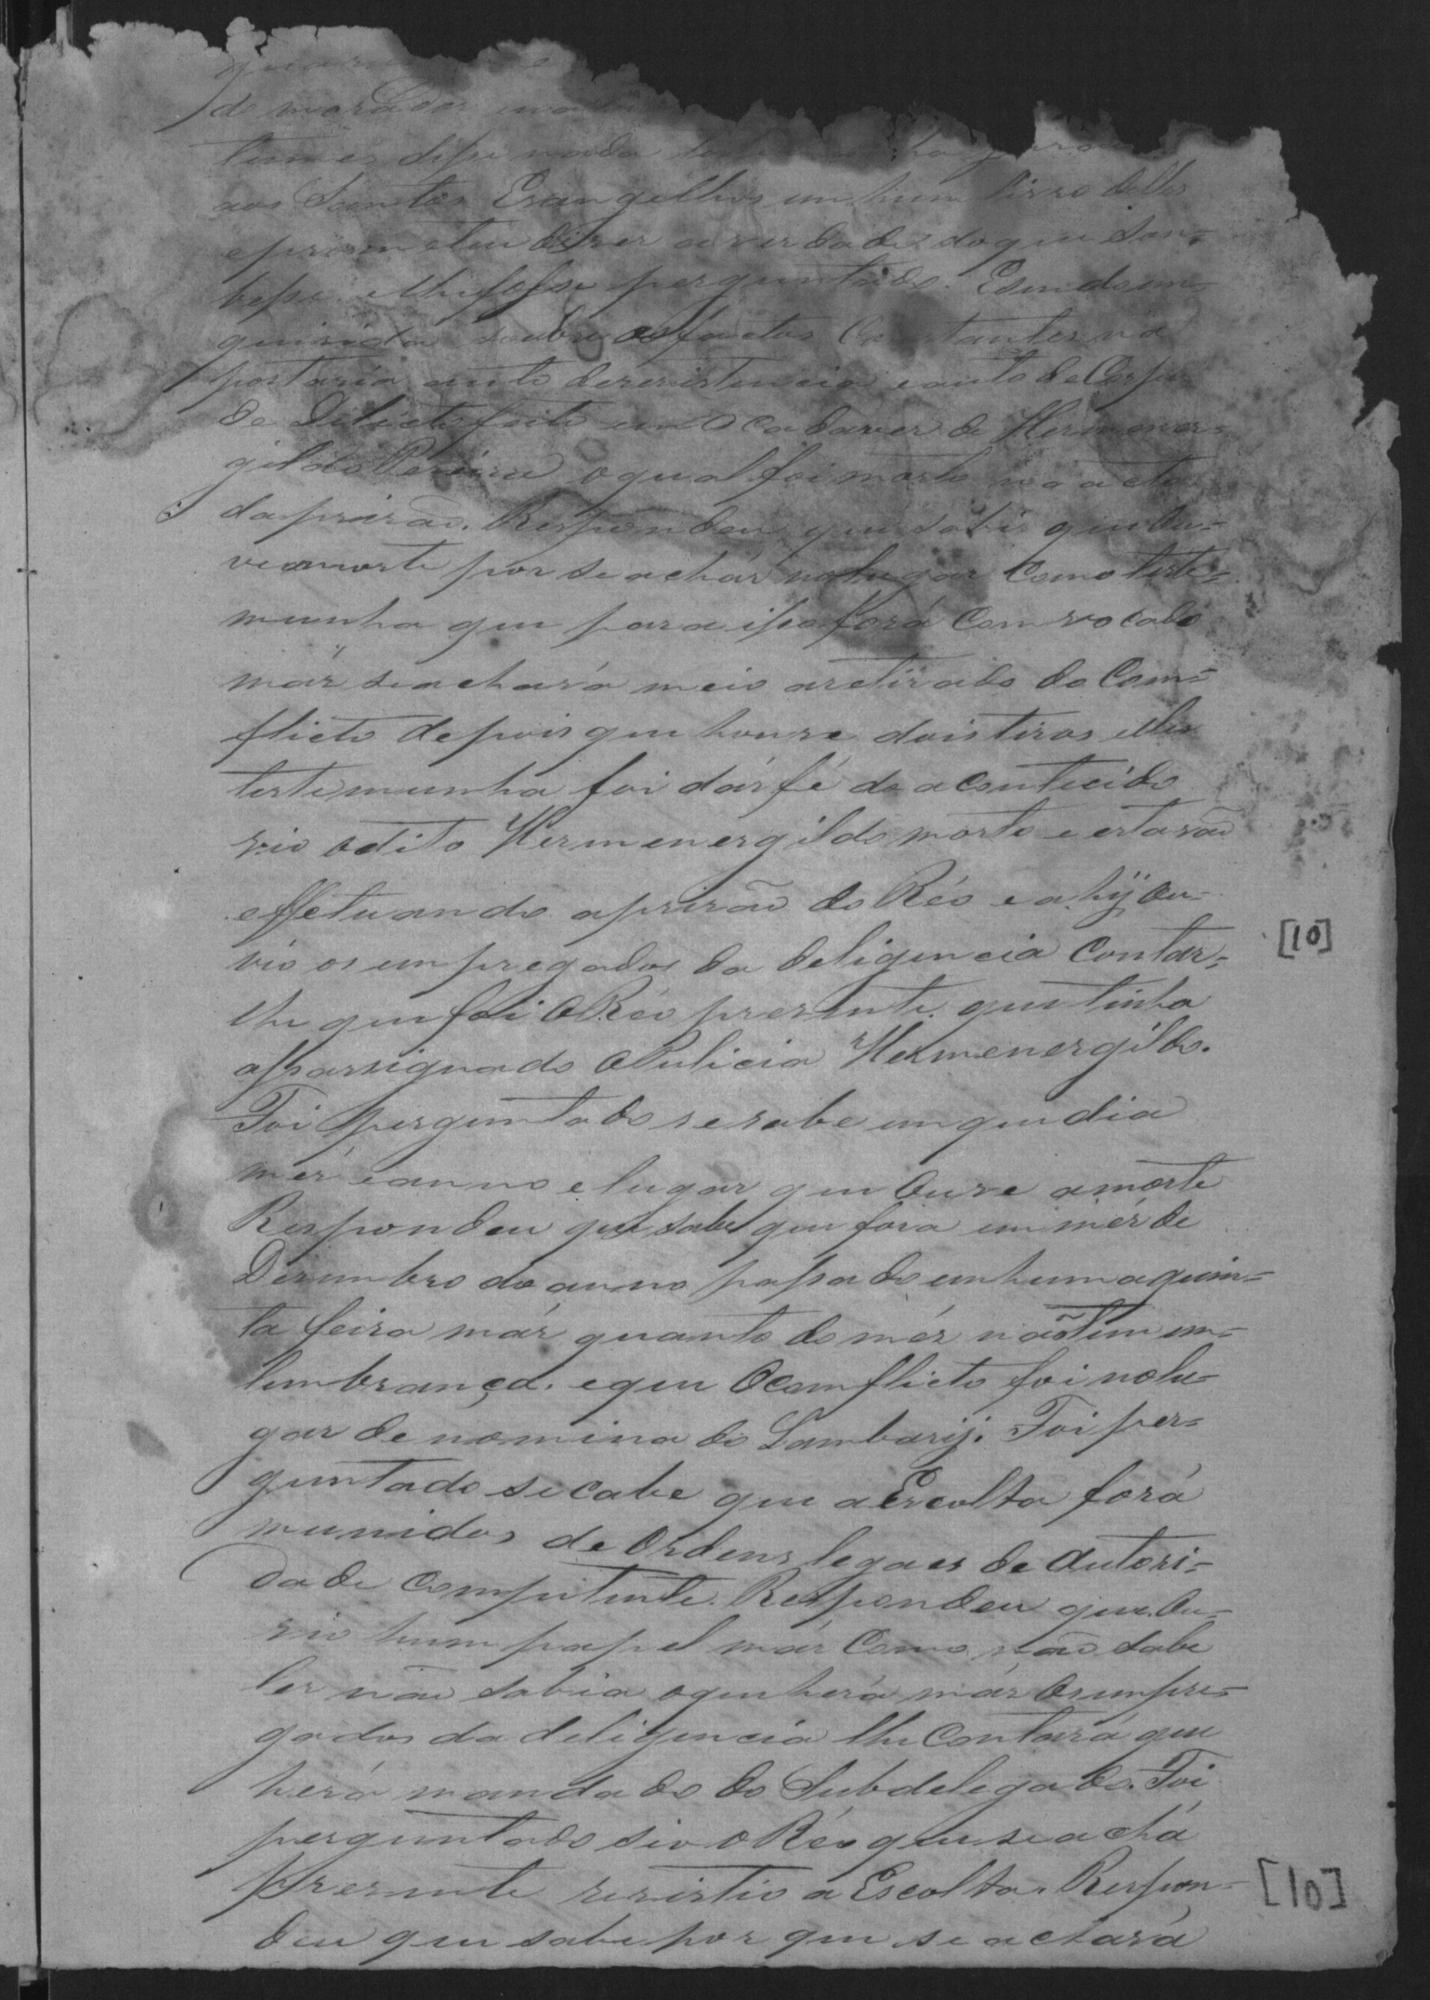 de morador
aos Santos Evangelhos em hum livro delles
e prometeu dizer a verdade do que Sou=
besse e lhe fosse perguntado. E sendo in=
quirida sobre os factos Constantes na
portaria auto de resistencia e auto de Corpo
de Delicto feito em o cadaver de Hermener=
gildo Pereira o qual foi morto no acto
da prizaõ. Respondeu que sabe que ou=
ve a morte por se achár no lugar Como teste=
munha que para isso forá Comvocado
már se achará meio aretirado do Com=
flicto depois que houve dois tiros elle
testemunha foi dár fé do acontecido
vio o dito Hermenergildo morto e estavaõ
effetuando a prizaõ do Réo e ahÿ ou=
vio os empregados da deligencia Contar=
lhe que foi o Réo prezente que tinha
assassignado o Pulicia Hermenergildo.
Foi perguntado se sabe em que dia
méz e anno e lugar que ouve a morte
Respondeu que sabe que fora em méz de
Dezembro do anno passado em huma quin=
ta feira már quanto do méz naõ tem em=
lembrança. e que o Comflicto foi no lu=
gar denomina do Lambarÿ. Foi per=
guntado se cabe que a Escolta forá
munidos de Ordens legaes de Autori=
dade Competente. Respondeu que ou=
vio hum papel már Como naõ sabe
ler naõ sabia o que herá már os empre=
gados da deligencia lhe Contará que
herá mandado do Subdelegado. Foi
perguntado si o Réo que se achá
prezente rezistio a Escolta. Respon=
deu que sabe por que se achará
[10]
[10]